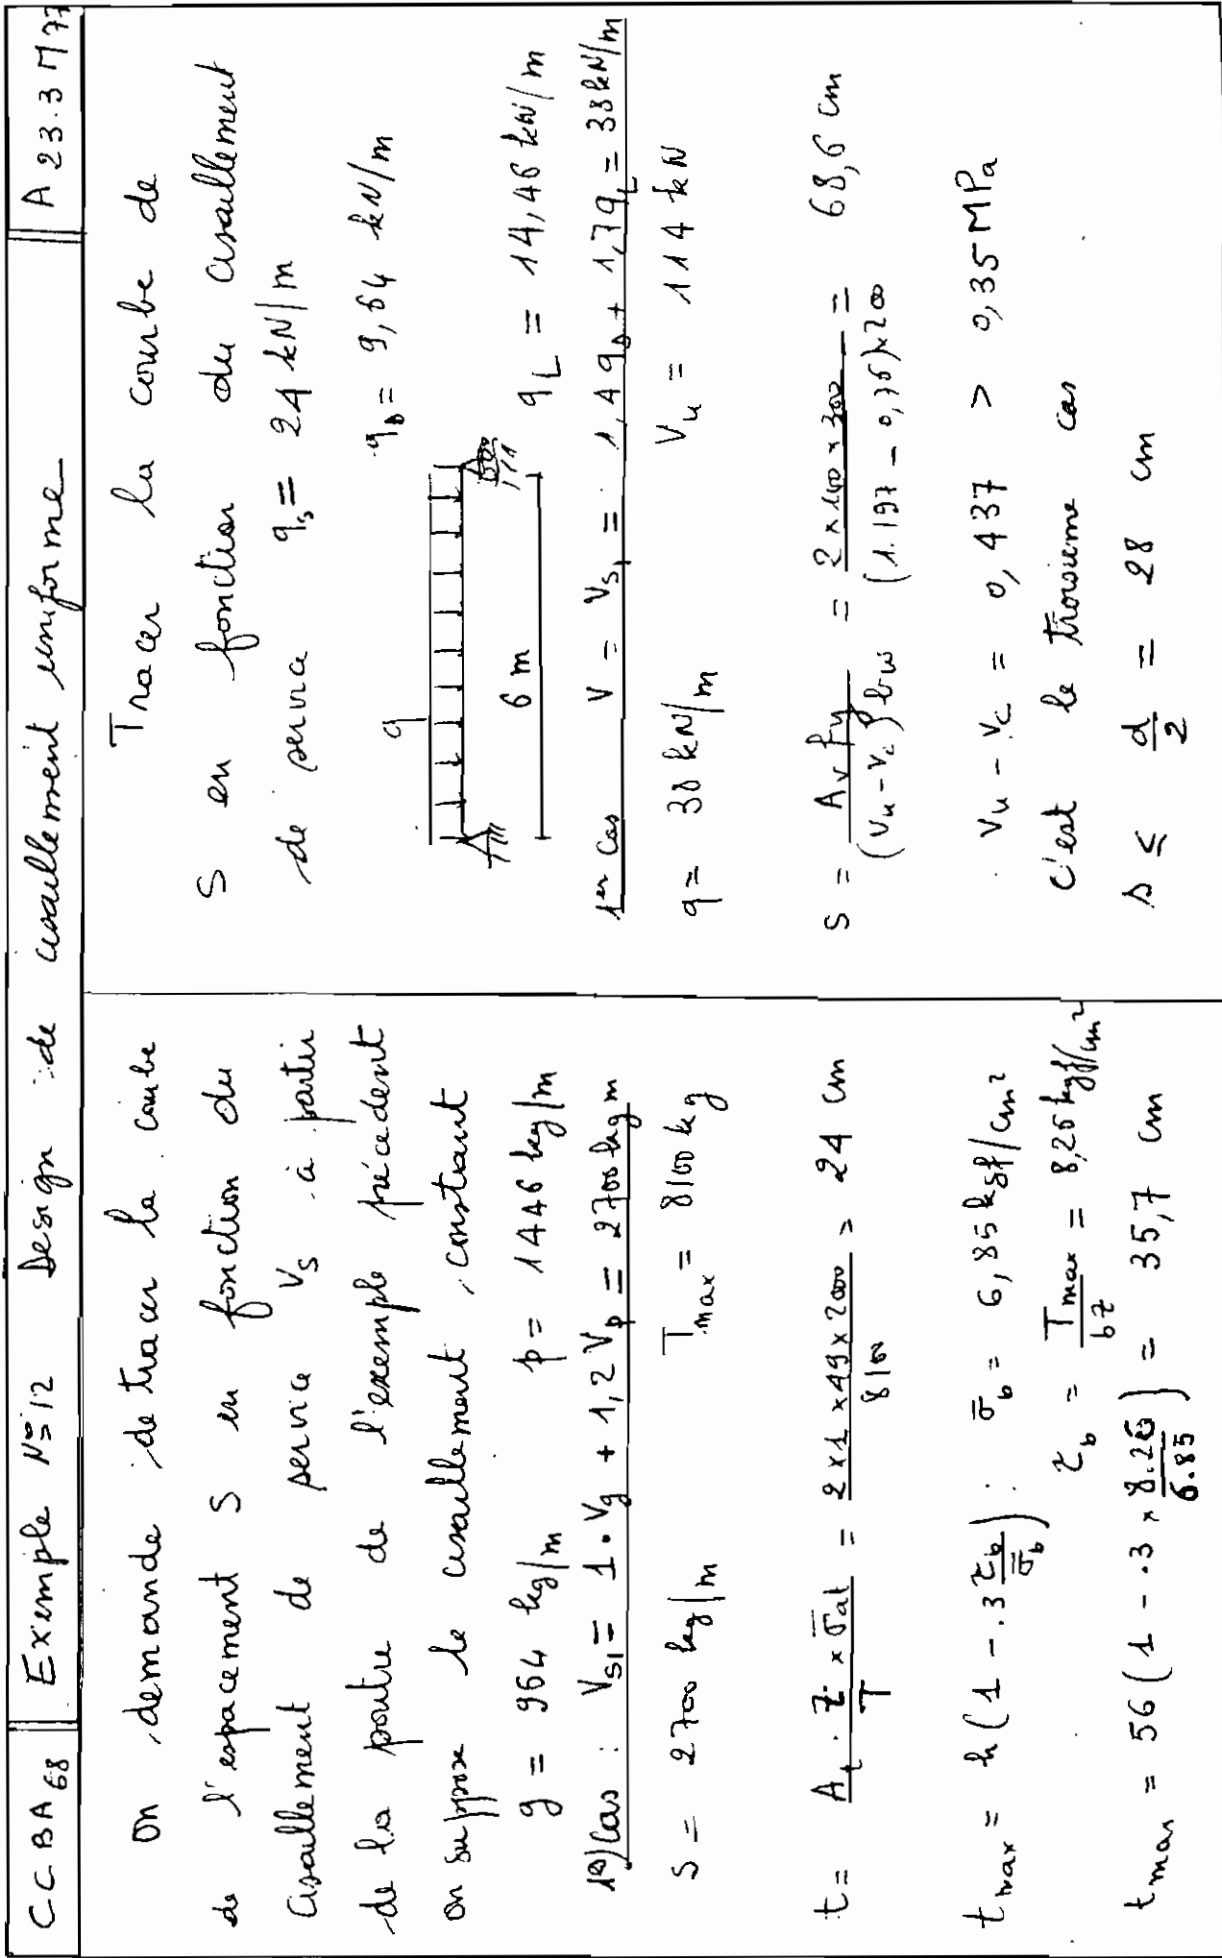 CCBA68 Exemple N°12 Design de cisaillement uniforme A 23.3 M77
On demande de tracer la courbe
de l'espacement S en fonction du
cisaillement de service Vs à partir
de la poutre de l'exemple précédent
On suppose le cisaillement constant
g = 964 kg/m p = 1446 kg/m
1°) Cas : Vs1 = 1. Vg + 1,2 Vp = 2700 kg m
S = 2700 kg/m Tmax = 8100 kg
t = At . z x σ̄at / T = 2 x 1 x 49 x 2000 / 8100 = 24 cm
tmax = h (1 - .3 τb / σ̄b) : σ̄b = 6,85 kgf/cm²
τb = Tmax / bz = 8,26 kgf/cm²
tmax = 56 (1 - .3 x 8.26 / 6.85) = 35,7 cm
Tracer la courbe de
S en fonction du cisaillement
de service qs = 24 kN/m
qD = 9,64 kN/m
q
6 m
qL = 14,46 kN/m
1er Cas V = Vs1 = 1,4 qD + 1,7 qL = 38 kN/m
q = 38 kN/m Vu = 114 kN
S = Av fy / (vu - vc) bw = 2 x 100 x 300 / (1.197 - 0,76) x 200 = 68,6 cm
vu - vc = 0,437 > 0,35 MPa
c'est le troisieme cas
s ≤ d/2 = 28 cm